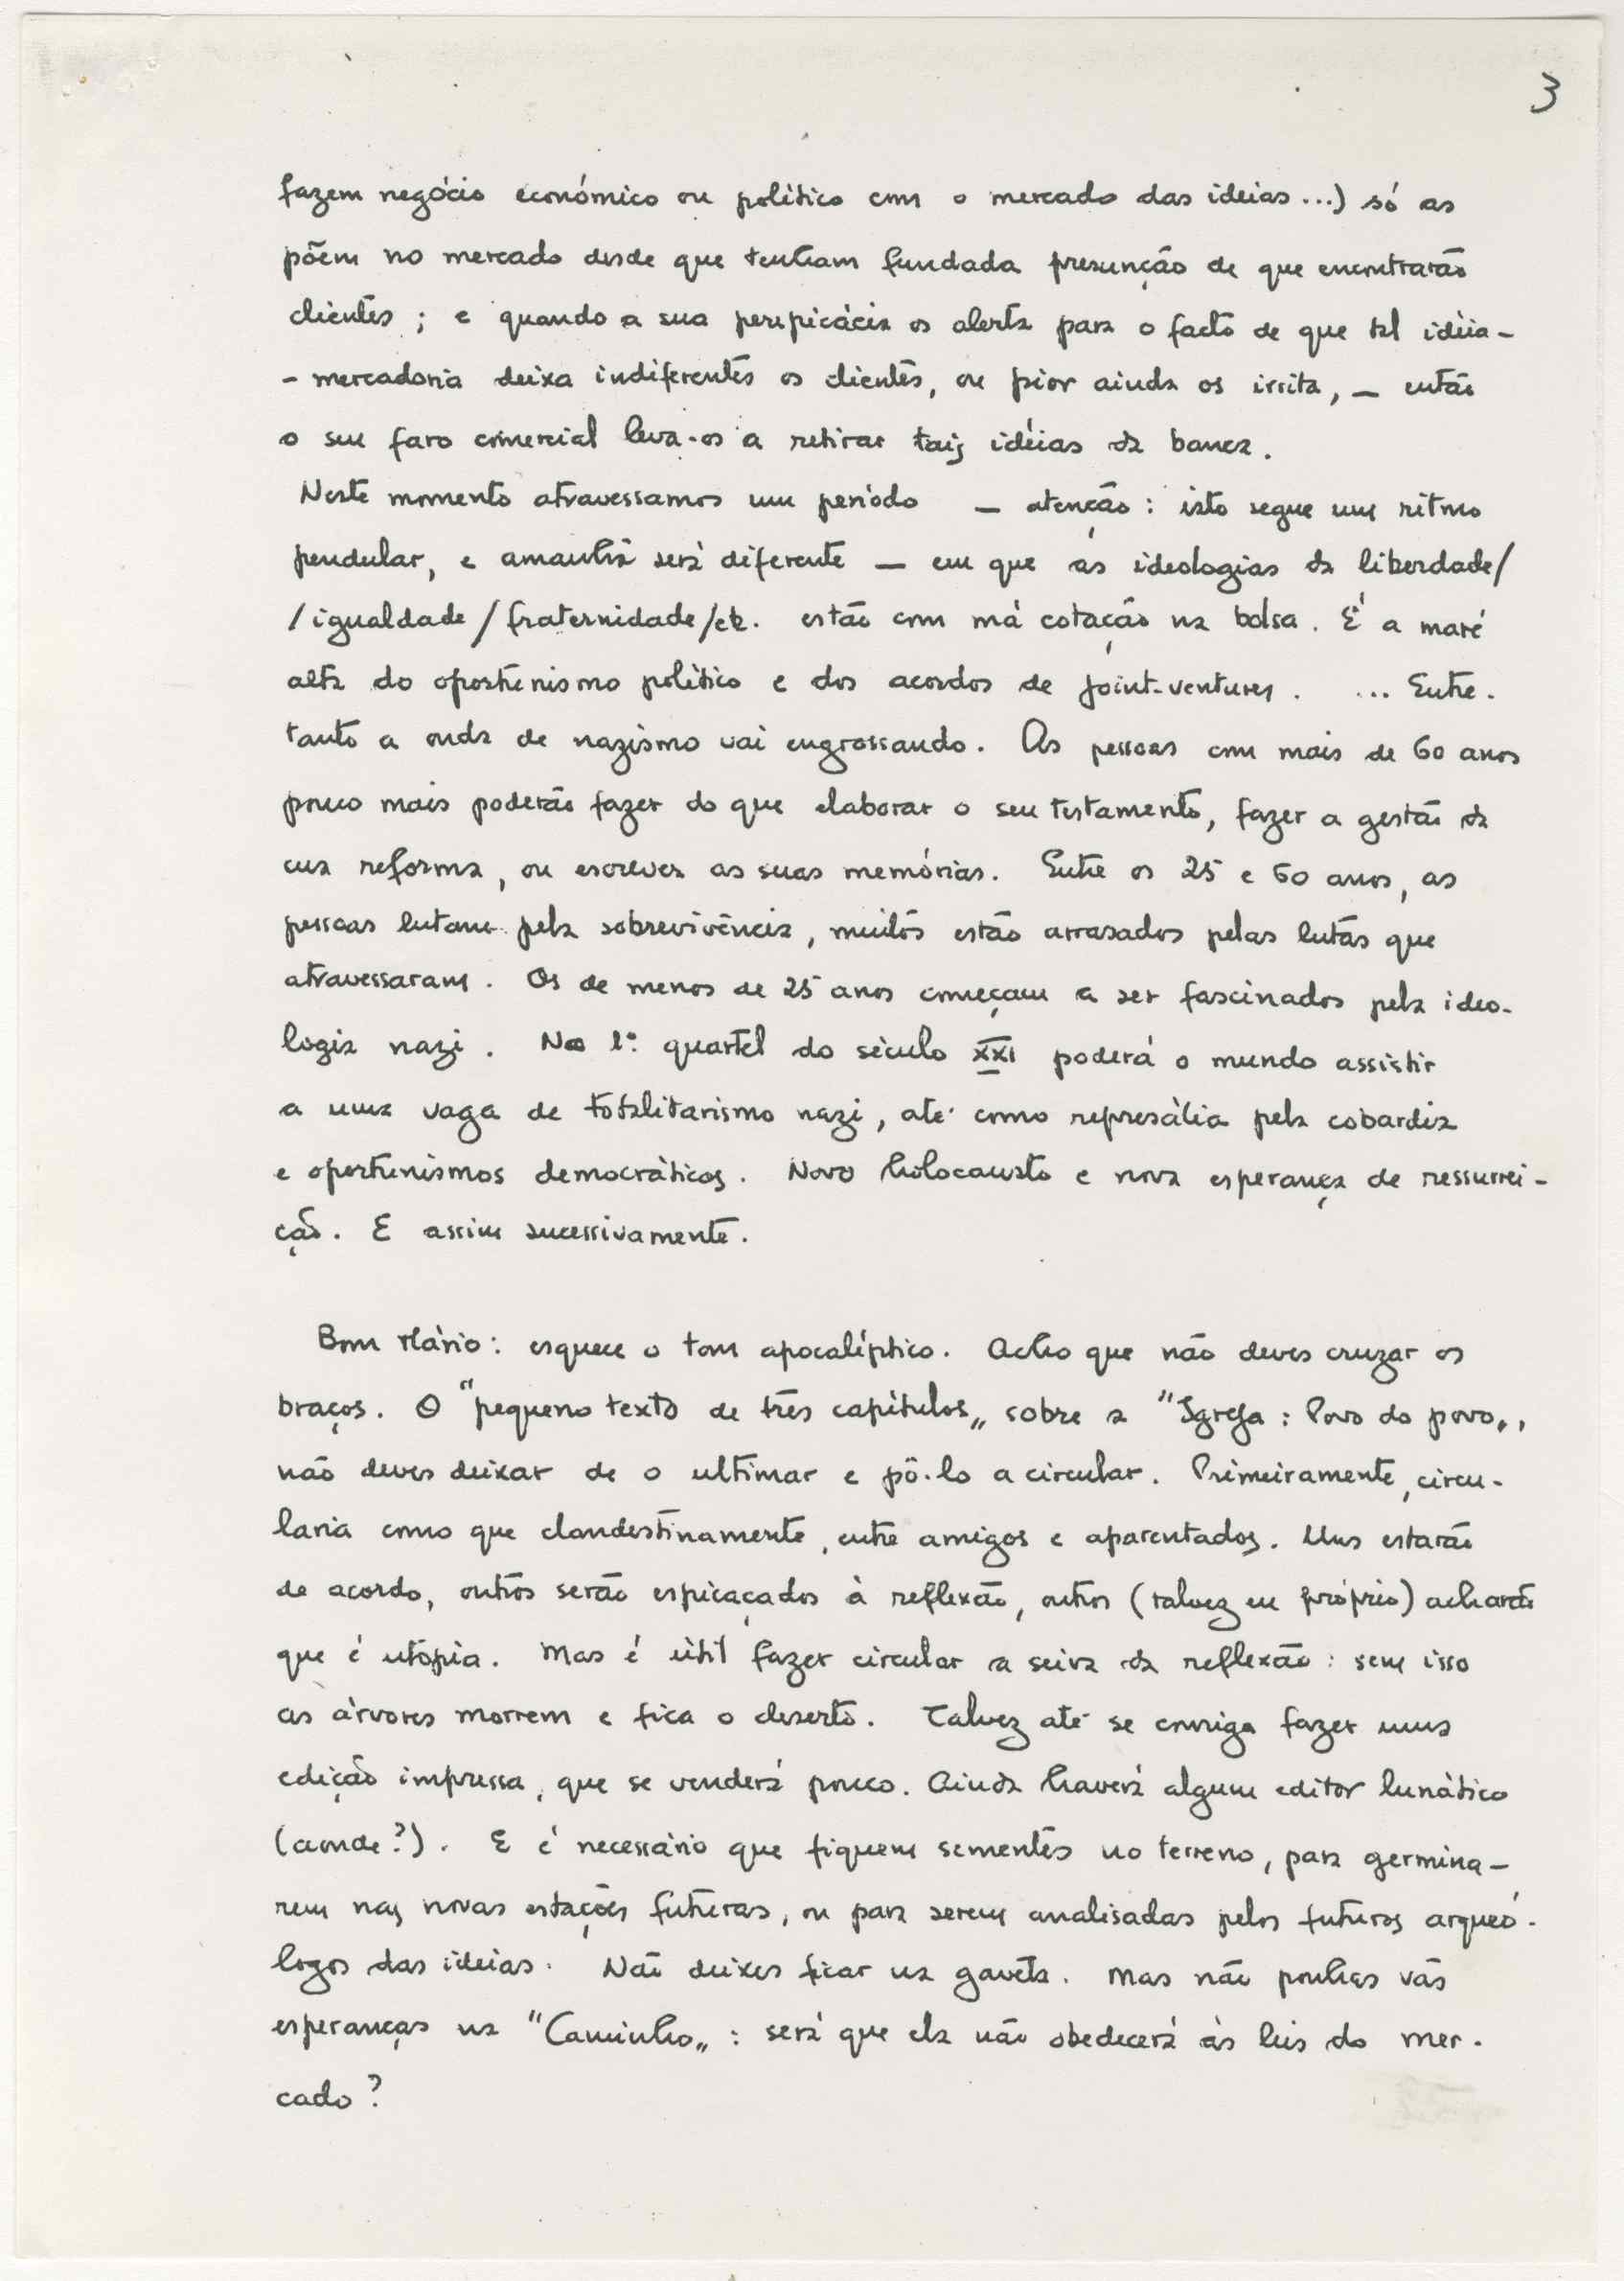 3
fazem negócio económico ou político com o mercado das ideias...) só as
põem no mercado desde que tenham fundada presunção de que encontrarão
clientes ; e quando a sua perspicácia os alerta para o facto de que tal idéia-
- mercadoria deixa indiferentes os clientes, ou pior ainda os irrita, — então
o seu faro comercial leva-os a retirar tais idéias da banca.
Neste momento atravessamos um período — atenção : isto segue um ritmo
pendular, e amanhã será diferente — em que as ideologias da liberdade/
/igualdade/fraternidade/etc. estão com má cotação na bolsa. É a maré
alta do oportunismo político e dos acordos de joint-ventures. ... Entre-
tanto a onda de nazismo vai engrossando. As pessoas com mais de 60 anos
pouco mais poderão fazer do que elaborar o seu testamento, fazer a gestão da
sua reforma, ou escrever as suas memórias. Entre os 25 e 60 anos, as
pessoas lutam pela sobrevivência, muitos estão arrasados pelas lutas que
atravessaram. Os de menos de 25 anos começam a ser fascinados pela ideo-
logia nazi. No 1º quartel do século XXI poderá o mundo assistir
a uma vaga de totalitarismo nazi, até como represália pela cobardia
e oportunismos democráticos. Novo holocausto e nova esperança de ressurrei-
ção. E assim sucessivamente.
Bom Mário: esquece o tom apocalíptico. Acho que não deves cruzar os
braços. O "pequeno texto de três capítulos" sobre a "Igreja : Povo do povo",
não deves deixar de o ultimar e pô-lo a circular. Primeiramente, circu-
laria como que clandestinamente, entre amigos e aparentados. Uns estarão
de acordo, outros serão espicaçados à reflexão, outros (talvez eu próprio) acharão
que é utopia. Mas é útil fazer circular a seiva da reflexão : sem isso
as árvores morrem e fica o deserto. Talvez até se consiga fazer uma
edição impressa, que se venderá pouco. Ainda haverá algum editor lunático
(aonde?). E é necessário que fiquem sementes no terreno, para germina-
rem nas novas estações futuras, ou para serem analisadas pelos futuros arqueó-
logos das ideias. Não deixes ficar na gaveta. Mas não ponhas vãs
esperanças na "Caminho" : será que ela não obedecerá às leis do mer-
cado?